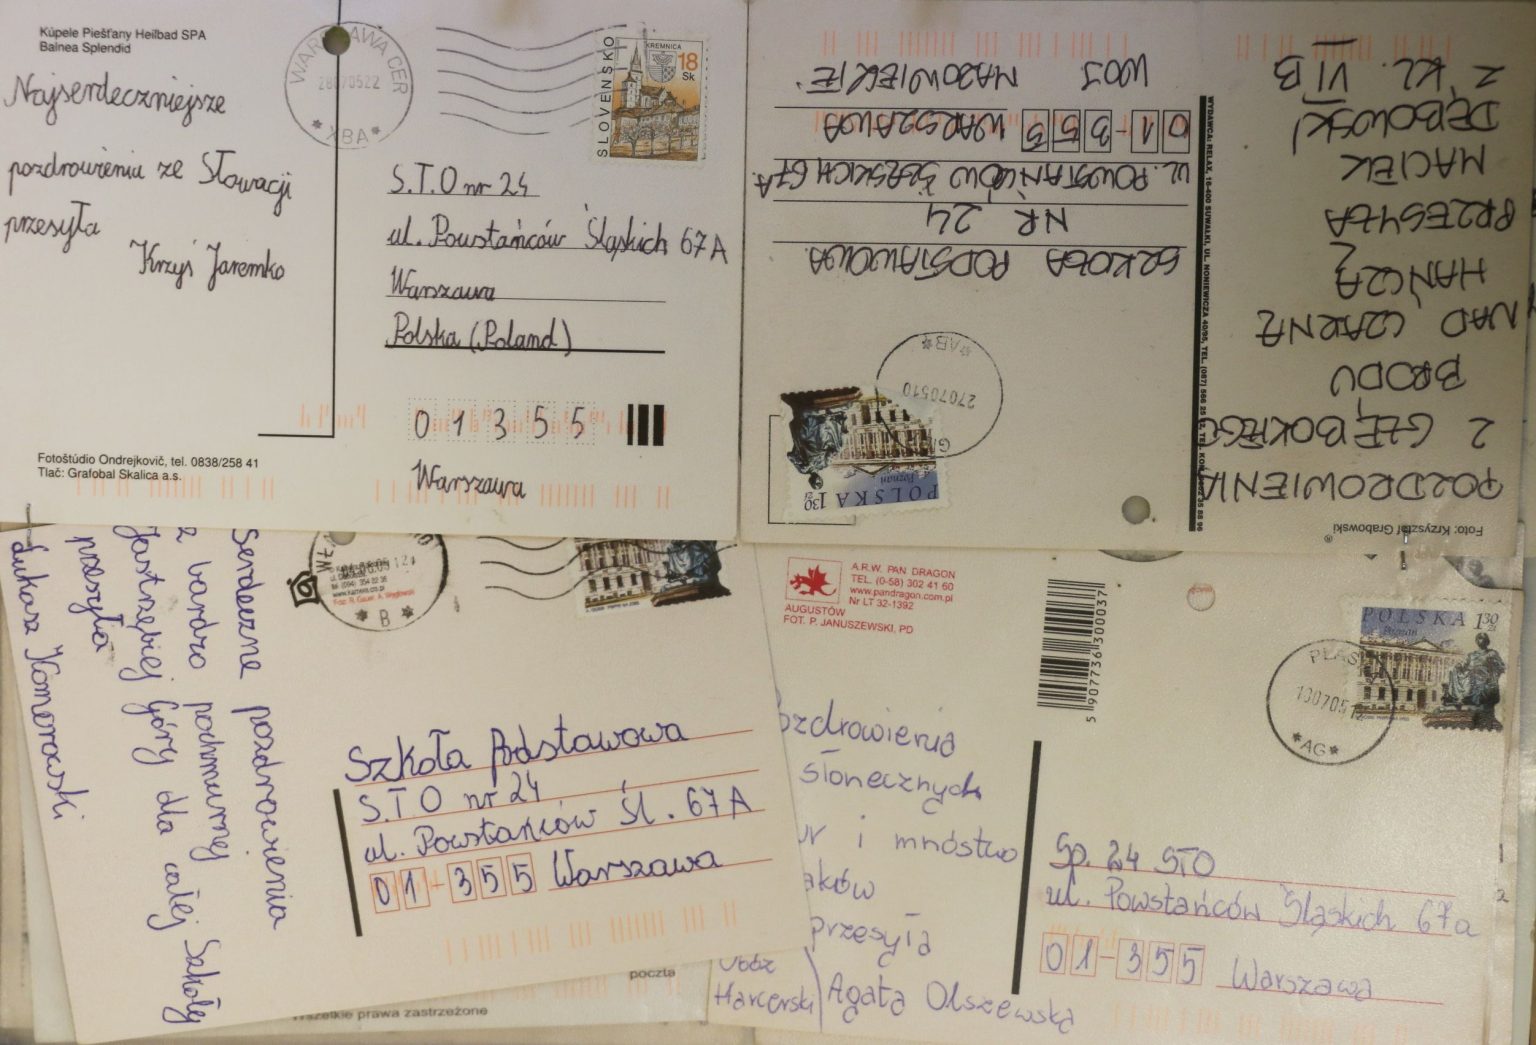 Kúpele Piešťany Heilbad SPA
Balnea Splendid
Najserdeczniejsze
pozdrowienia ze Słowacji
przesyła
Krzyś Jaremko
WARSZAWA CER
280705 22
* XBA *
SLOVENSKO
KREMNICA
18
Sk
S.T.O nr 24
ul. Powstańców Śląskich 67A
Warszawa
Polska (Poland)
01355
Warszawa
Fotoštúdio Ondrejkovič, tel. 0838/258 41
Tlač: Grafobal Skalica a.s.
Foto: Krzysztof Grabowski
POZDROWIENIA
Z GŁĘBOKIEGO
BRODU
NAD CZARNĄ
HAŃCZĄ
PRZESYŁA
MACIEK
DĘBOWSKI
Z KL. VI B
WYDAWCA: RELAX, 16-400 SUWAŁKI, UL. NONIEWICZA
POLSKA 130 zł
Poznań
270705 10
* AB *
SZKOŁA PODSTAWOWA
NR 24
UL. POWSTAŃCÓW ŚLĄSKICH 67A
01-355 WARSZAWA
WOJ. MAZOWIECKIE
Serdeczne pozdrowienia
z bardzo pochmurnej
Jastrzębiej Góry dla całej Szkoły
przesyła
Łukasz Komorowski
* B *
Szkoła Podstawowa
S.T.O nr 24
ul. Powstańców Śl. 67A
01-355 Warszawa
poczta
Wszelkie prawa zastrzeżone
A.R.W. PAN DRAGON
TEL. (0-58) 302 41 60
www.pandragon.com.pl
Nr LT 32-1392
AUGUSTÓW
FOT. P. JANUSZEWSKI, PD
5 907736 300037
POLSKA 130 zł
Poznań
130705 12
* AG *
ozdrowienia
słonecznych
i mnóstwo
aków
przesyła
Agata Olszewska
Obóz
Harcerski
Sp. 24 STO
ul. Powstańców Śląskich 67a
01-355 Warszawa